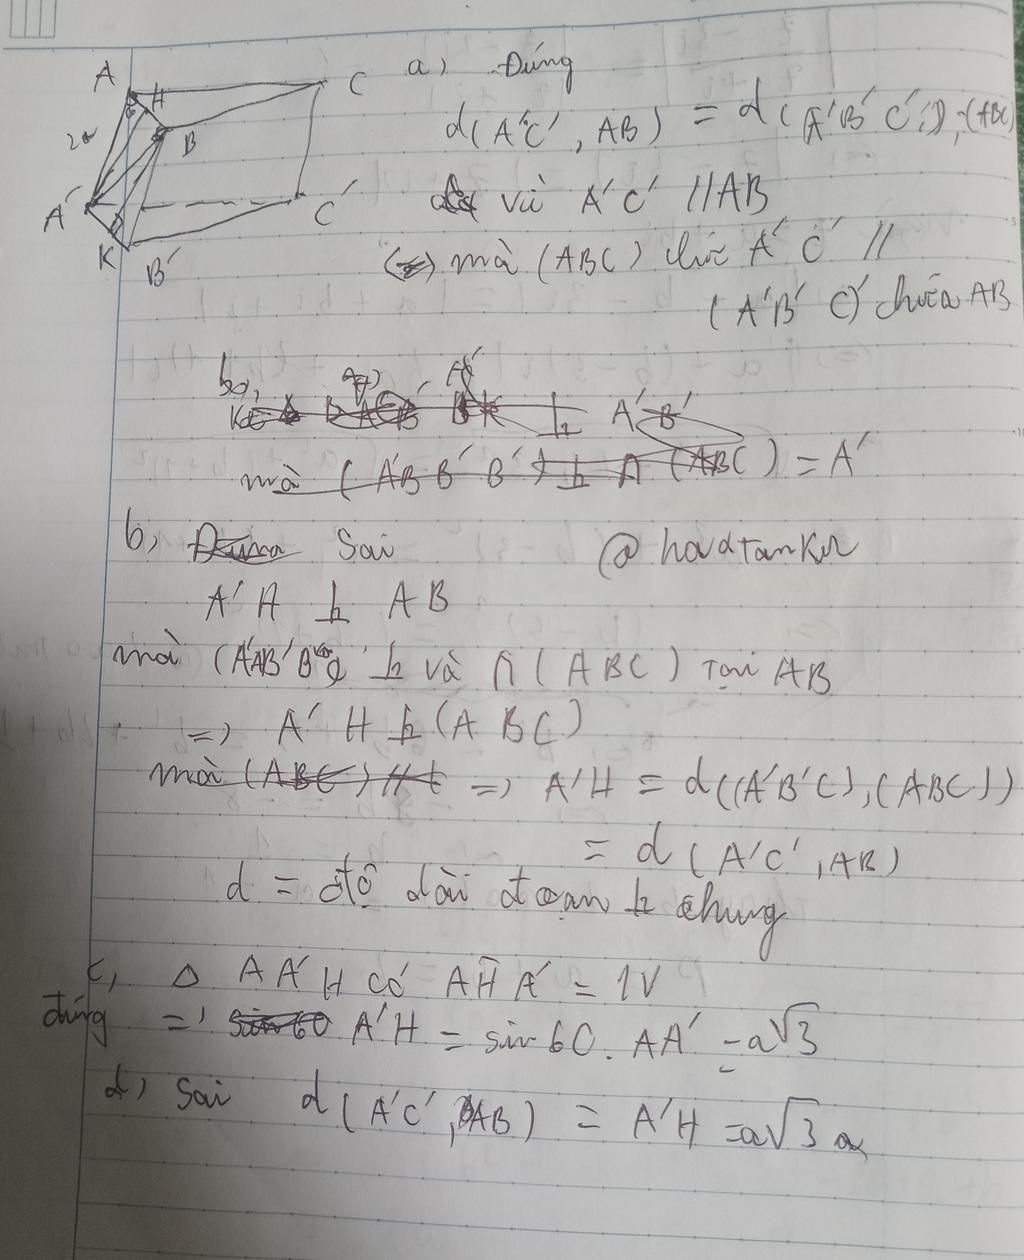 A H C
2a B
A' C'
K B'
a) Đúng
d(A'C', AB) = d(A'B'C'), (ABC)
vì A'C' // AB
mà (ABC) A'C' //
(A'B'C)' chứa AB
b),
A'B'
mà (A'B B'B') ⊥ A (ABC) = A'
b, Sai @hoadtanker
A'A ⊥ AB
mà (A'AB'B) ⊥ và ∩ (ABC) Tại AB
=> A'H ⊥ (ABC)
mà (ABC) // => A'H = d((A'B'C), (ABC))
= d(A'C', AB)
d = độ dài đoạn ⊥ chung
c, Δ AA'H có AHA' = 1V
đúng => sin 60 A'H = sin 60. AA' = a√3
d) Sai d(A'C', AB) = A'H = a√3 a